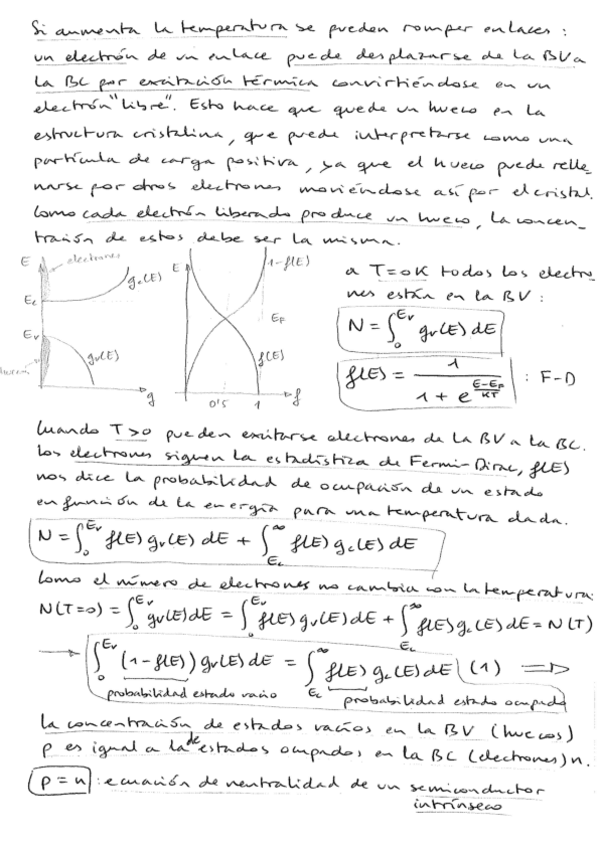 Si aumenta la temperatura se pueden romper enlaces:
un electrón de un enlace puede desplazarse de la BV a
la BC por excitación térmica convirtiéndose en un
electrón "libre". Esto hace que quede un hueco en la
estructura cristalina, que puede interpretarse como una
partícula de carga positiva, ya que el hueco puede relle-
narse por otros electrones moviéndose así por el cristal.
Como cada electrón liberado produce un hueco, la concen-
tración de estos debe ser la misma.
E electrones gc(E)
Ec
Ev gv(E)
huecos
g
E 1-f(E)
EF
f(E)
0'5 1 f
a T=0K todos los electro-
nes están en la BV:
N = ∫₀^Ev gv(E) dE
f(E) = 1 / (1 + e^((E-EF)/KT)) : F-D
Cuando T>0 pueden excitarse electrones de la BV a la BC.
Los electrones siguen la estadística de Fermi-Dirac, f(E)
nos dice la probabilidad de ocupación de un estado
en función de la energía para una temperatura dada.
N = ∫₀^Ev f(E) gv(E) dE + ∫_Ec^∞ f(E) gc(E) dE
Como el número de electrones no cambia con la temperatura:
N(T=0) = ∫₀^Ev gv(E) dE = ∫₀^Ev f(E) gv(E) dE + ∫_Ec^∞ f(E) gc(E) dE = N(T)
→ ∫₀^Ev (1-f(E)) gv(E) dE = ∫_Ec^∞ f(E) gc(E) dE (1) ⇒
probabilidad estado vacío probabilidad estado ocupado
la concentración de estados vacíos en la BV (huecos)
p es igual a la de estados ocupados en la BC (electrones) n.
p = n : ecuación de neutralidad de un semiconductor
intrínseco